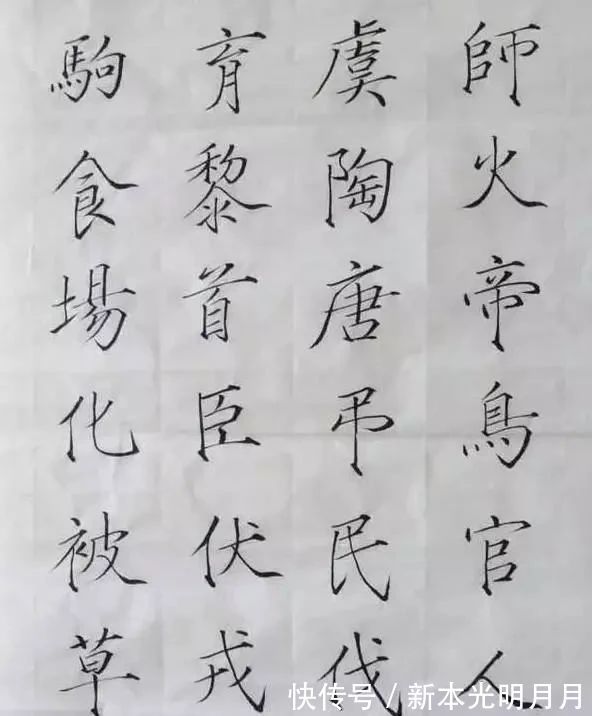 師火帝鳥官人
虞陶唐弔民伐
育黎首臣伏戎
駒食場化被草
快传号/新本光明月月